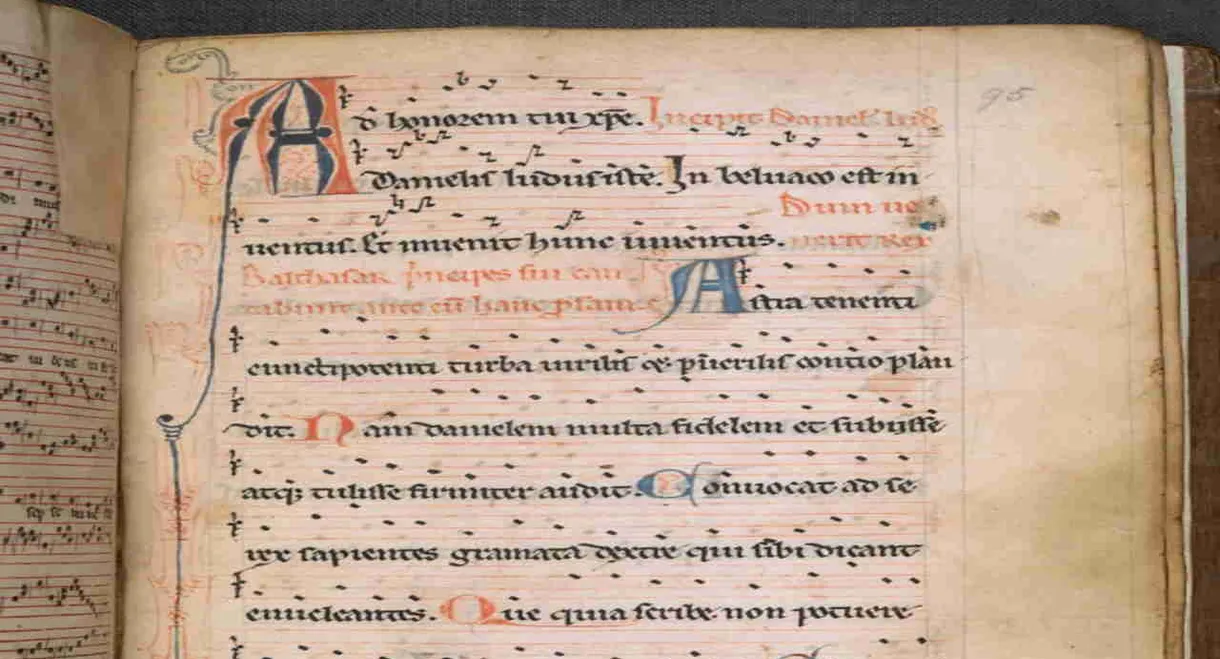 95
Ad honorem tui xp̄e. Incipit Daniel' lud'
Danielis ludus iste. In beluaco est in
uentus. Et inuenit hunc iuuentus.
Dum ue
nerit Rex
Balthasar principes sui can
tabunt ante eū hanc prosam.
Astra tenenti
cunctipotenti turba uirilis & puerilis contio plau
dit. Nam danielem multa fidelem et subijsse
atq; tulisse firmiter audit. Conuocat ad se
rex sapientes gramata dextre qui sibi dicant
enucleantes. Que quia scribe non potuere